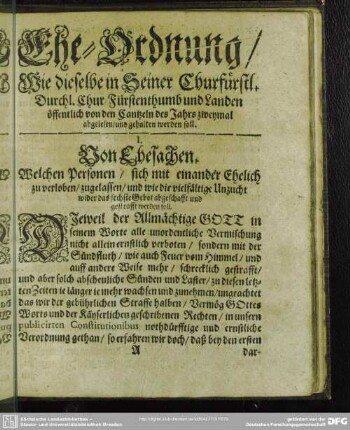 Ehe-Ordnung/
Wie dieselbe in Seiner Churfürstl.
Durchl. Chur Fürstenthumb und Landen
öffentlich von den Cantzeln des Jahrs zweymal
abgelesen/und gehalten werden soll.
I.
Von Ehesachen.
Welchen Personen / sich mit einander Ehelich
zu verloben/ zugelassen/ und wie die vielfältige Unzucht
wider das sechste Gebot abgeschafft und
gestrafft werden soll.
DJeweil der Allmächtige GOTT in
seinem Worte alle unordentliche Vermischung
nicht allein ernstlich verboten / sondern mit der
Sündfluth / wie auch Feuer vom Himmel / und
auff andere Weise mehr / schrecklich gestrafft/
und aber solch abscheuliche Sünden und Laster/ zu diesen letz-
ten Zeiten ie länger ie mehr wachsen und zunehmen/ungeachtet
das wir der gebührlichen Straffe halben / Vermög GOttes
Worts und der Käyserlichen geschribenen Rechten/ in unsern
publicirten Constitutionibus nothdürfftige und ernstliche
Verordnung gethan/ so erfahren wir doch/ daß bey den ersten
A
dar-